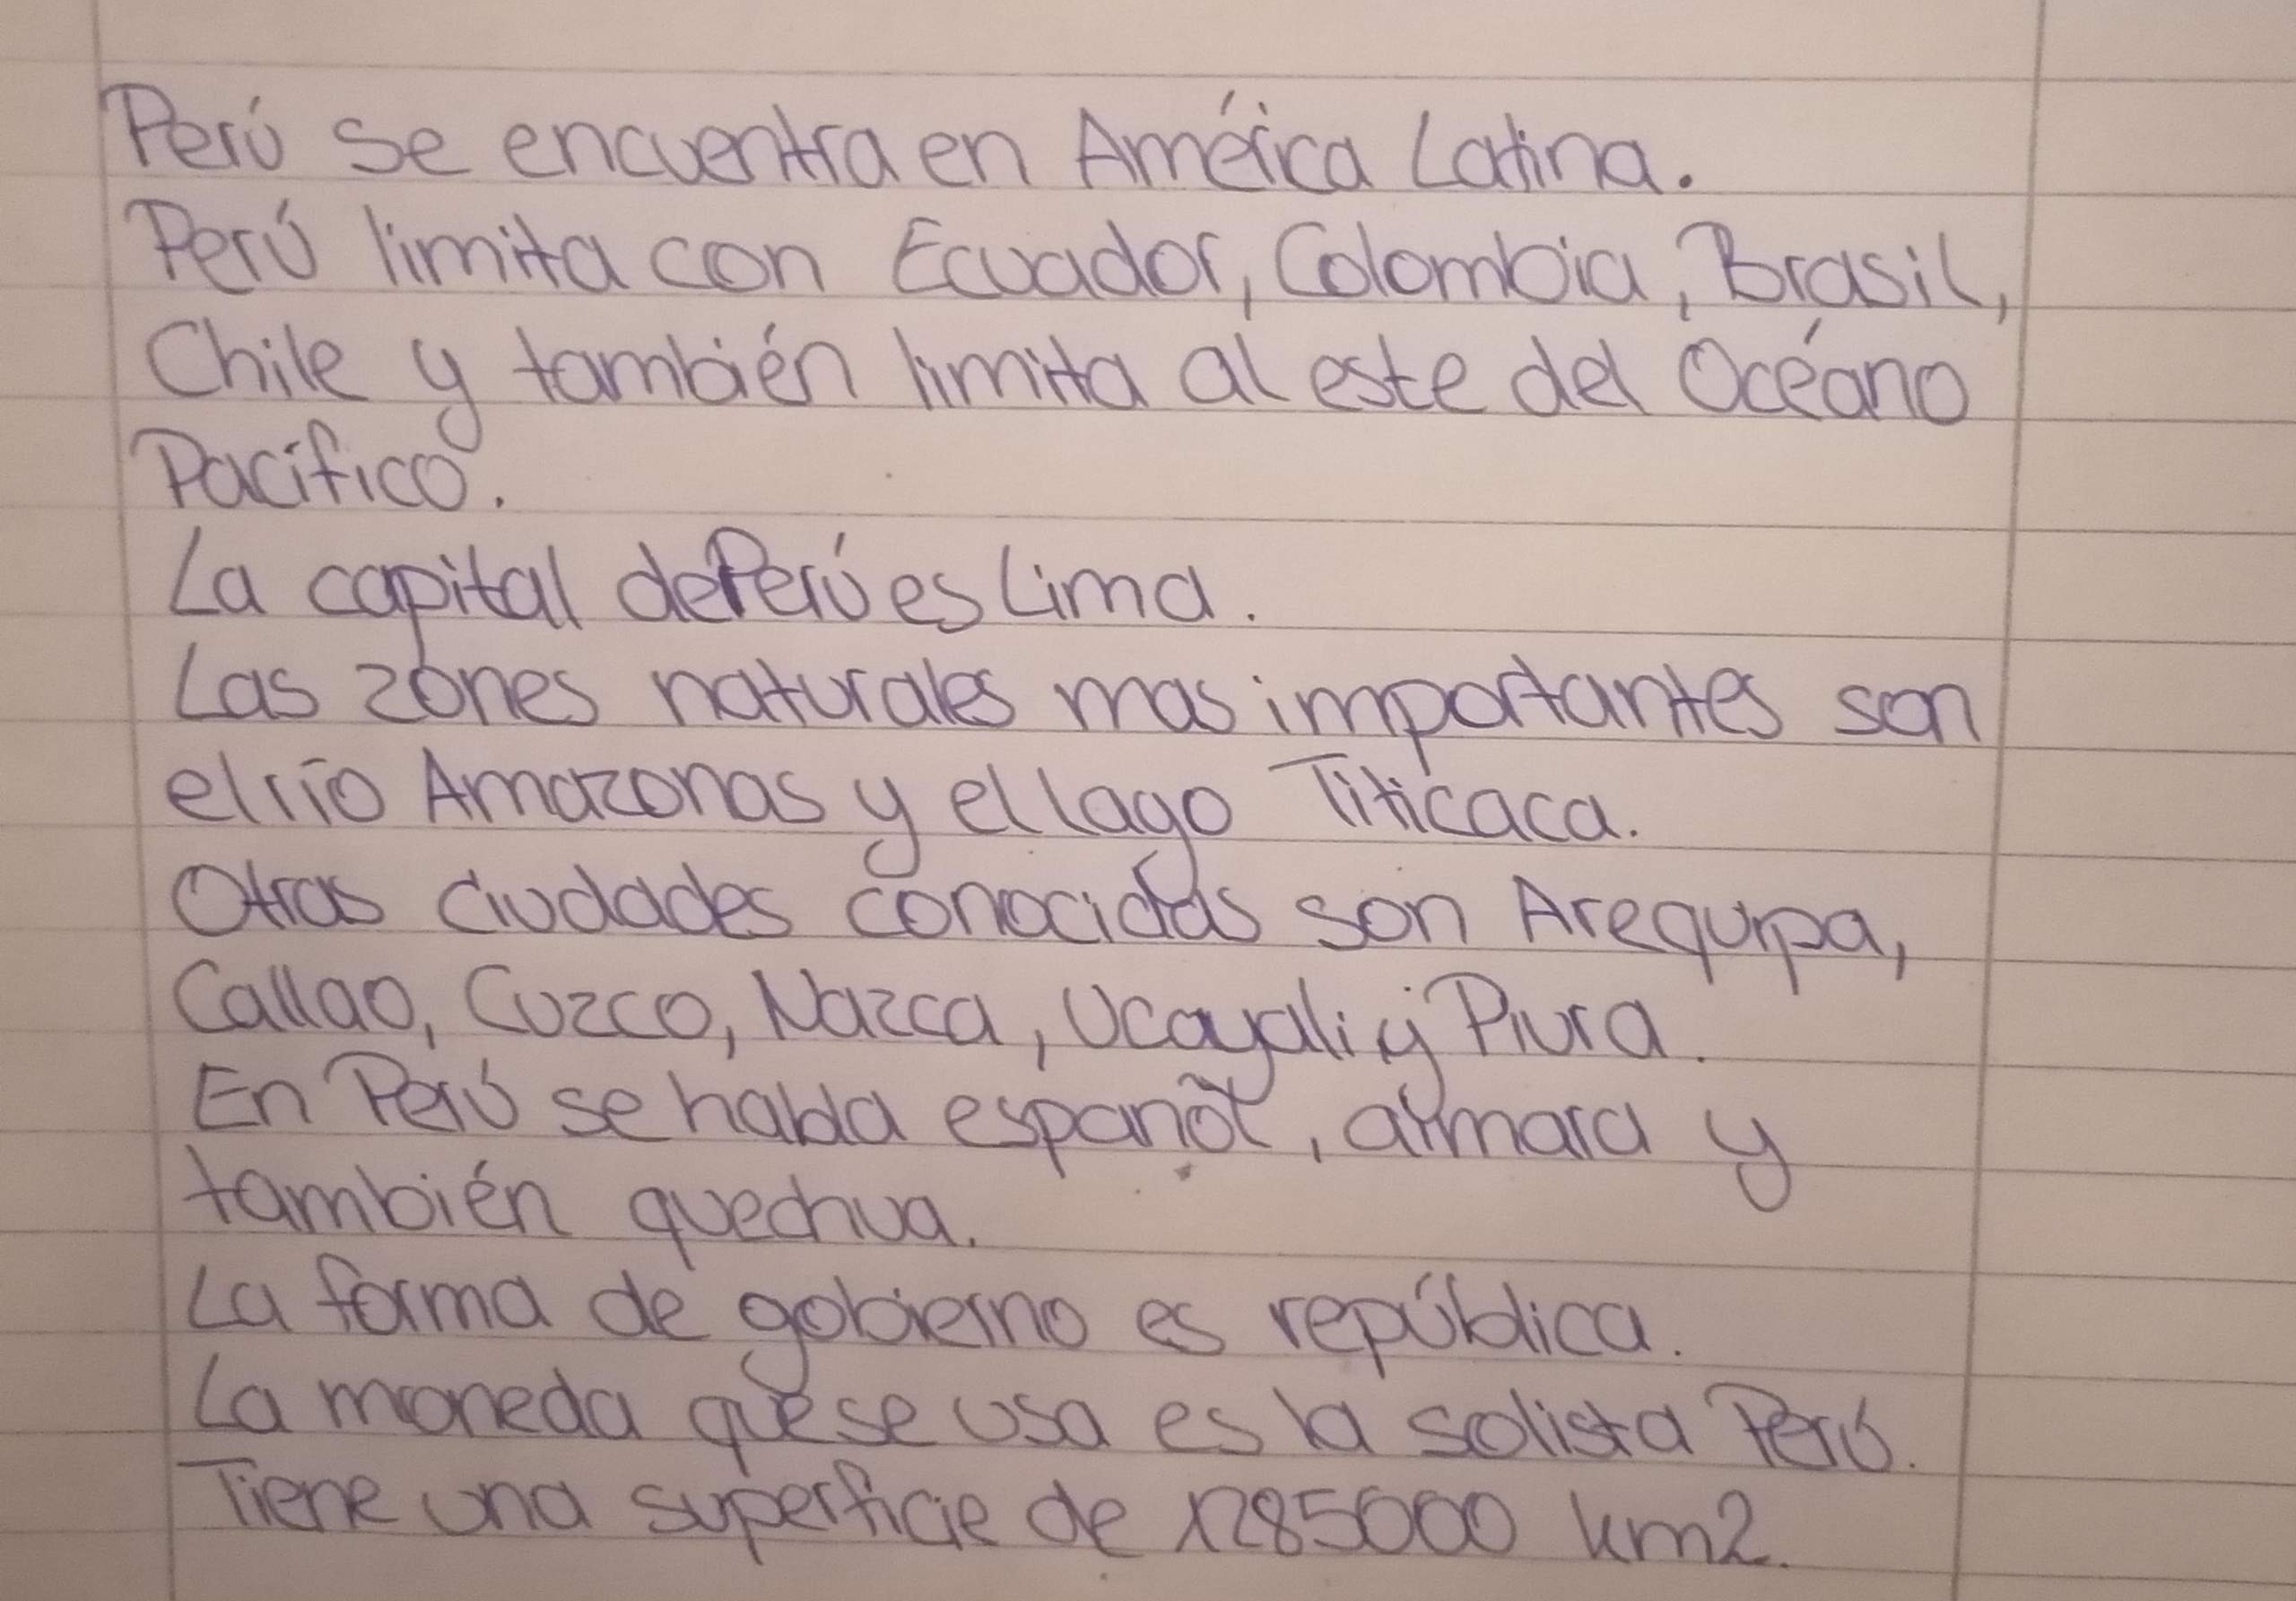 Perú se encuentra en América Latina.
Perú limita con Ecuador, Colombia, Brasil,
Chile y también limita al este del Océano
Pacífico.
La capital de Perú es Lima.
Las zones naturales mas importantes son
el río Amazonas y el lago Titicaca.
Otras ciudades conocidas son Arequipa,
Callao, Cuzco, Nazca, Ucayali y Piura.
En Perú se habla español, aymara y
también quechua.
La forma de gobierno es república.
La moneda que se usa es la solista Perú.
Tiene una superficie de 1285000 km2.